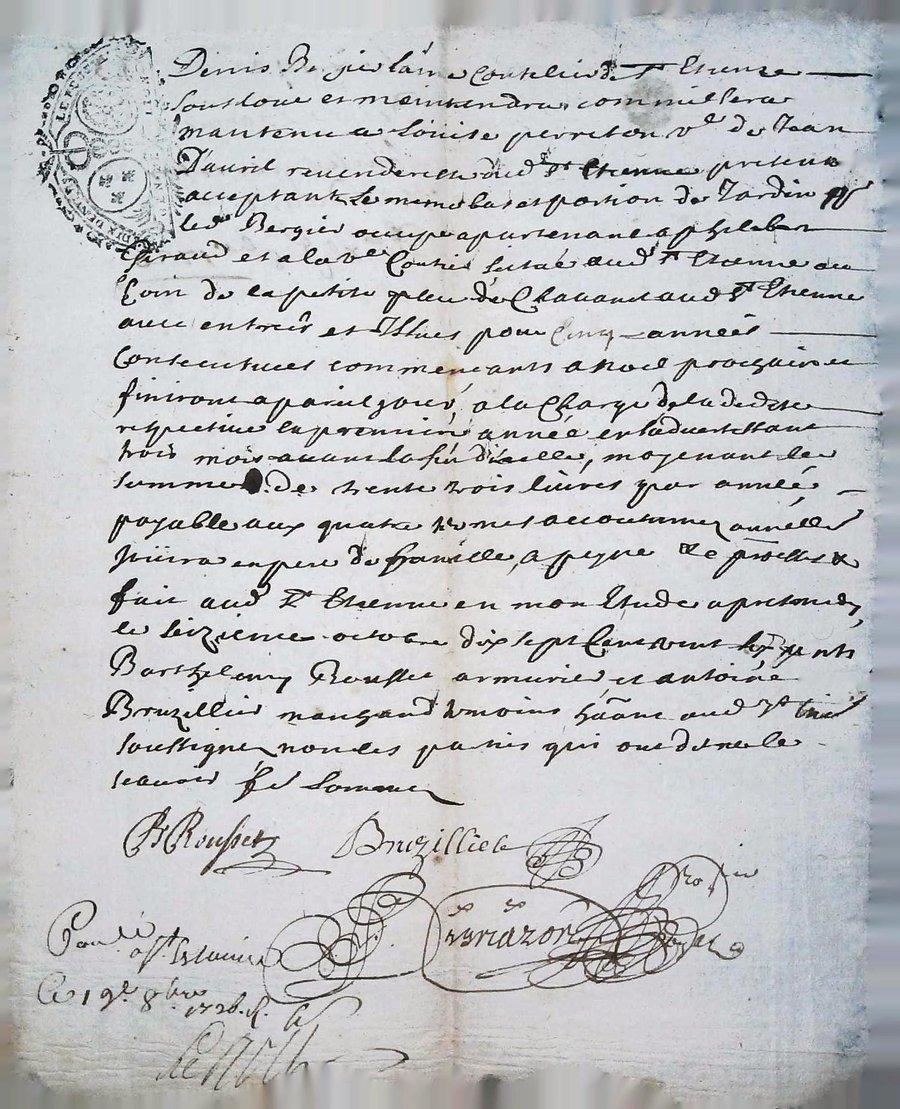 Denis Bergier laine Coutelier de St Etienne
sousloue et maintendra comm illera
mantenu a Louise perreton ve de Jean
Dauril revenderesse dud St Etienne presente
acceptante le meme bas et portion de Jardin
led Bergier occupe apartenant a philebert
Giraud et a la ve situé aud St Etienne au
Coin de la petite place de Chavanel aud St Etienne
avec entreés et Issues pour Cinq années
Consecutives commencants a noel prochain et
finiront a pareil jour, a la Charge de la dedite
respective la premiere année en sadvertissant
trois mois avant la fin dicelle, moyenant la
somme de trente trois livres par année
payable aux quatre termes accoutumez annelles
Jouira en pere de famille, a peyne
fait aud St Etienne en mon Etude apres midy
le seizieme octobre dix sept Cent vint six pnts
Barthelemy Rousset armurier et antoine
Bruzillier marchand temoins hants aud St Etienne
soussignez non les parties qui ont dit ne le
scavoir de ce Sommez
BRousset Bruzillier
Con lé
a St Estienne
Ce 19e 8bre
1726. R.